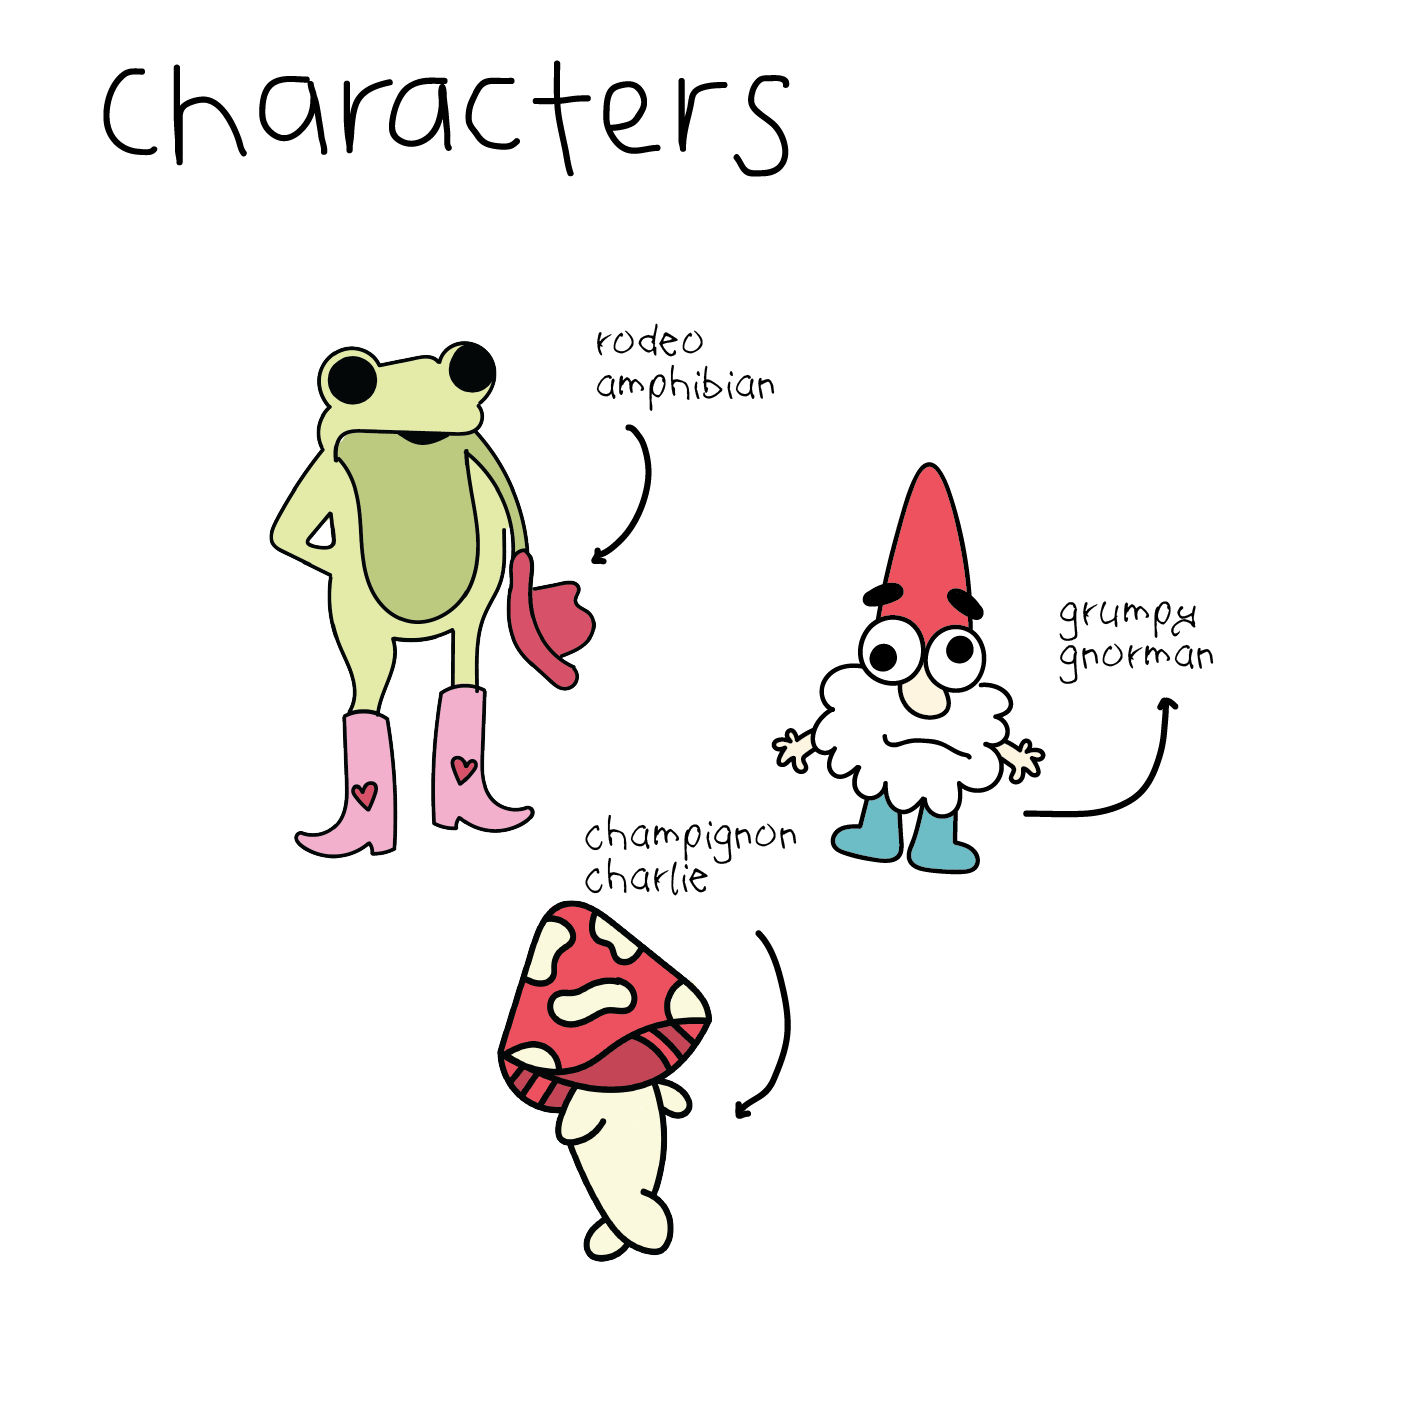 characters
rodeo
amphibian
grumpy
gnorman
champignon
charlie